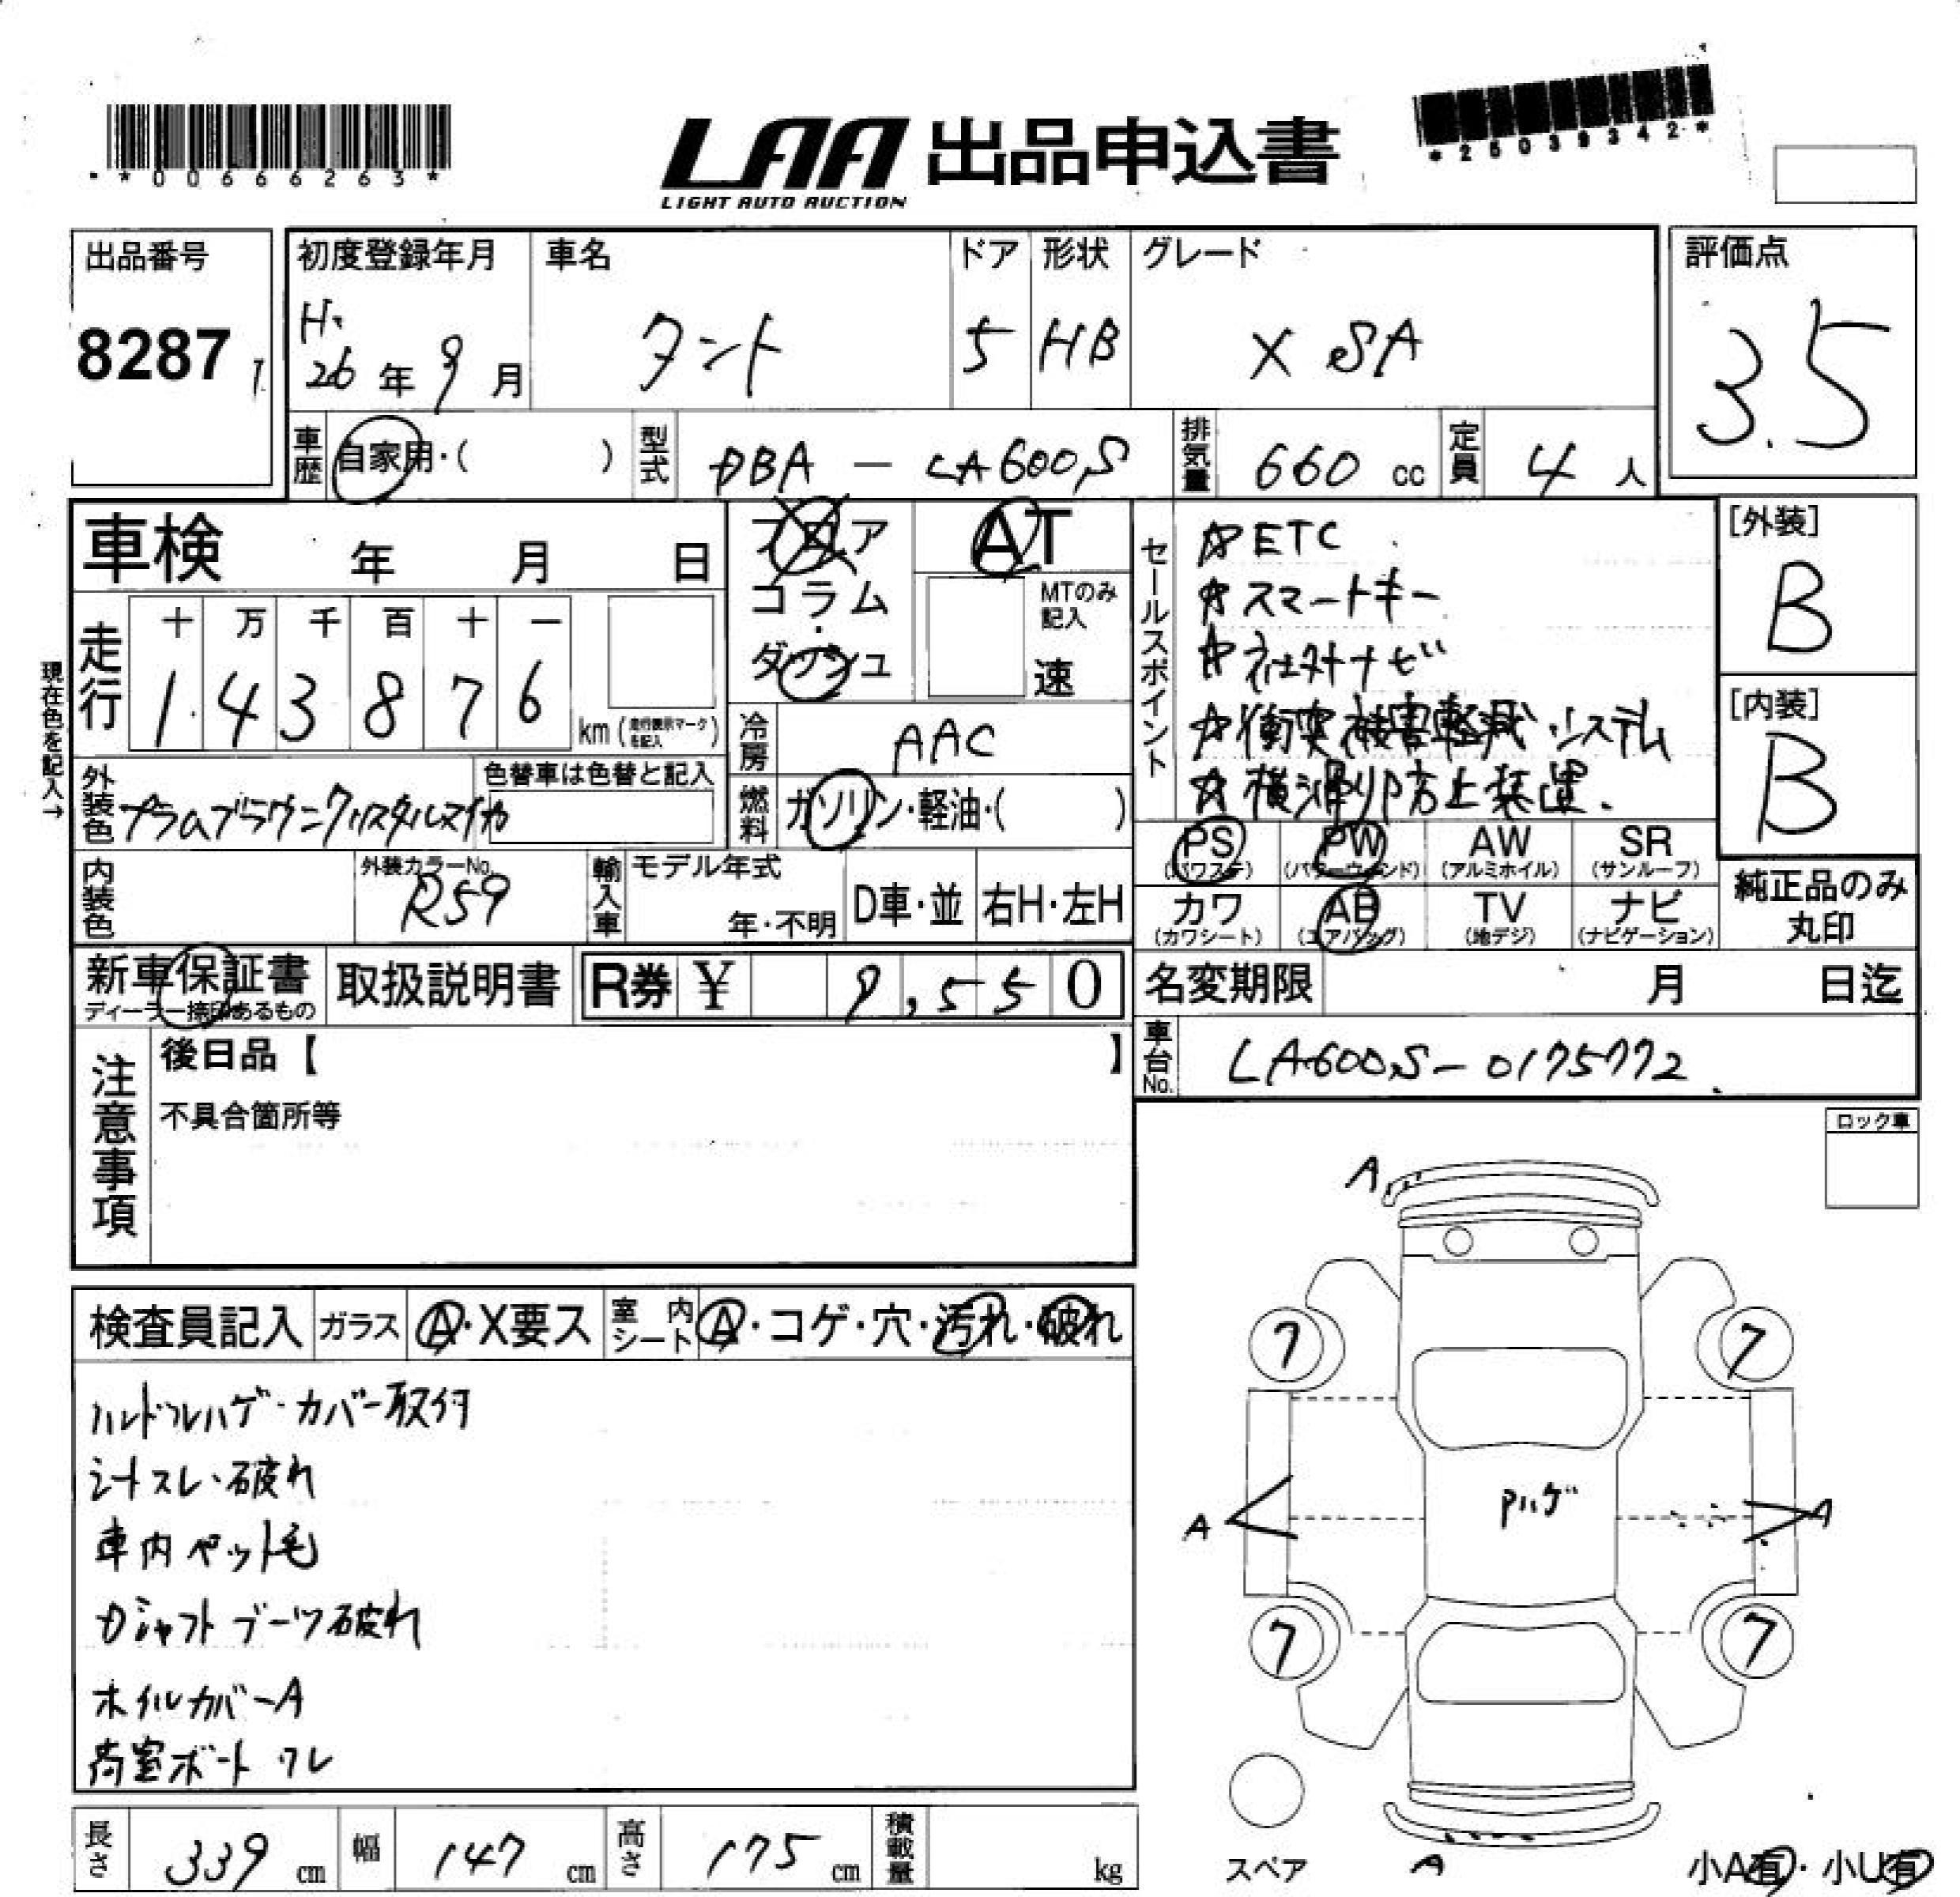 *00666263*
LAA 出品申込書
LIGHT AUTO AUCTION
*25039342*
出品番号
8287
初度登録年月
H.
26年9月
車名
タント
ドア
5
形状
HB
グレード
X SA
評価点
3.5
車歴
自家用・( )
型式
DBA - LA600S
排気量
660 cc
定員
4人
車検 年 月 日
フロア
コラム
・
ダッシュ
AT
MTのみ
記入
速
セールスポイント
☆ETC
☆スマートキー
☆衝突被害軽減システム
☆横滑り防止装置.
[外装]
B
[内装]
B
現在色を記入→
走行
十 万 千 百 十 一
1 4 3 8 7 6
km (走行表示マークを記入)
冷房
AAC
外装色
プラムブラウンクリスタルマイカ
色替車は色替と記入
燃料
ガソリン・軽油・( )
PS
(パワステ)
PW
(パワーウィンド)
AW
(アルミホイル)
SR
(サンルーフ)
カワ
(カワシート)
AB
(エアバッグ)
TV
(地デジ)
ナビ
(ナビゲーション)
純正品のみ
丸印
内装色
外装カラーNo.
R59
輸入車
モデル年式
年・不明
D車・並
右H・左H
新車保証書
ディーラー捺印あるもの
取扱説明書
R券 ¥ 9,550
名変期限 月 日迄
車台No.
LA600S-0175772
注意事項
後日品【 】
不具合箇所等
ロック車
検査員記入
ガラス
A・X要ス
室内シート
A・コゲ・穴・汚れ・破れ
ハンドルハゲ・カバー取付
シートスレ・破れ
車内ペット毛
Dシャフトブーツ破れ
ホイルカバーA
荷室ボードワレ
A
7
7
A
Pハゲ
A
7
7
スペア
A
小A有・小U有
長さ
339 cm
幅
147 cm
高さ
175 cm
積載量
kg